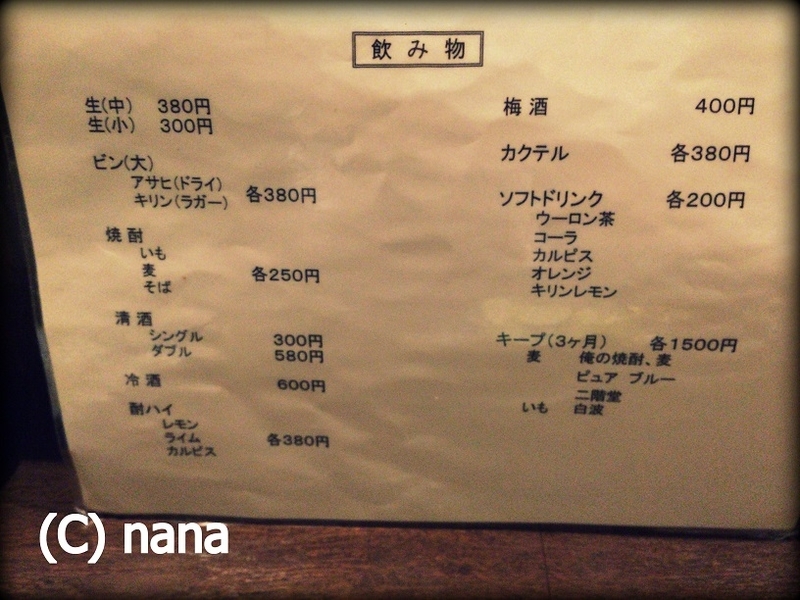 飲み物
生(中) 380円
生(小) 300円
ビン(大)
アサヒ(ドライ)
キリン(ラガー) 各380円
焼酎
いも
麦 各250円
そば
清酒
シングル 300円
ダブル 580円
冷酒 600円
酎ハイ
レモン
ライム 各380円
カルピス
梅酒 400円
カクテル 各380円
ソフトドリンク 各200円
ウーロン茶
コーラ
カルピス
オレンジ
キリンレモン
キープ(3ヶ月) 各1500円
麦 俺の焼酎、麦
ピュア ブルー
二階堂
いも 白波
(C) nana